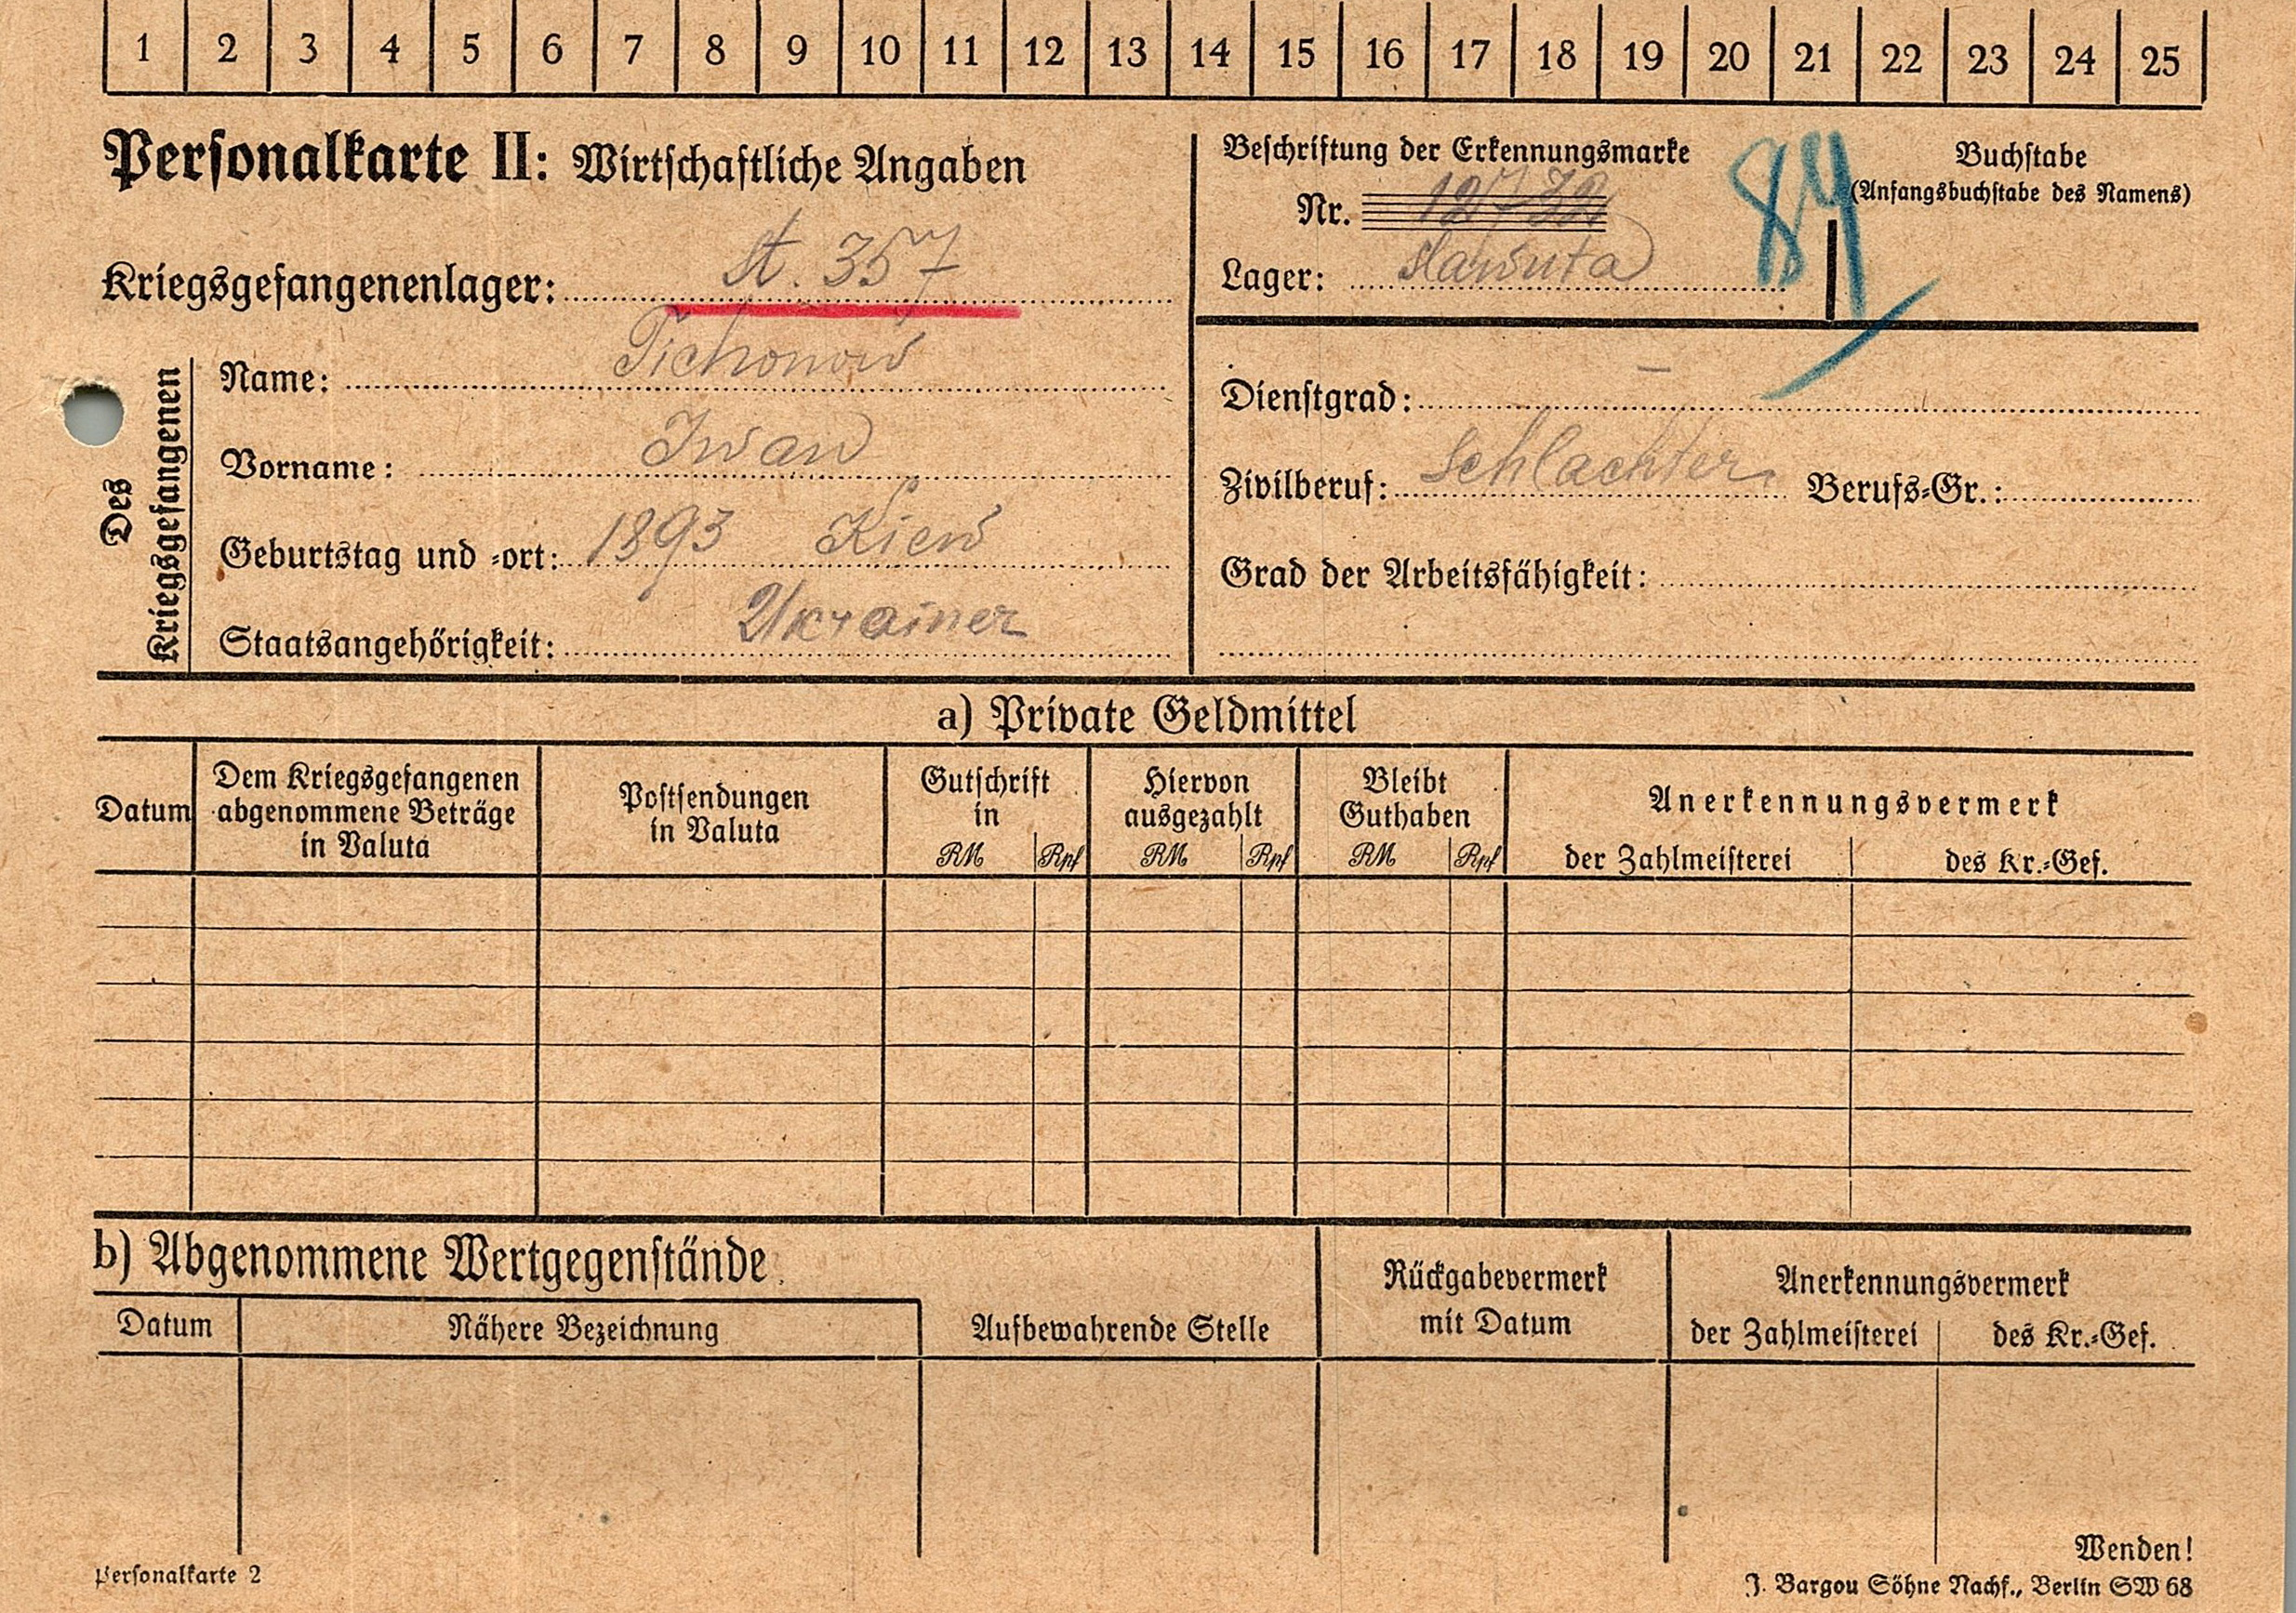 1 2 3 4 5 6 7 8 9 10 11 12 13 14 15 16 17 18 19 20 21 22 23 24 25
Personalkarte II: Wirtschaftliche Angaben
Kriegsgefangenenlager: St. 357
Beschriftung der Erkennungsmarke
Nr. 12732
Lager: Slawuta
84
Buchstabe
(Anfangsbuchstabe des Namens)
Des Kriegsgefangenen
Name: Tichonow
Vorname: Iwan
Geburtstag und -ort: 1893 Kiew
Staatsangehörigkeit: Ukrainer
Dienstgrad: –
Zivilberuf: Schlachter Berufs-Gr.:
Grad der Arbeitsfähigkeit:
a) Private Geldmittel
Datum
Dem Kriegsgefangenen
abgenommene Beträge
in Valuta
Postsendungen
in Valuta
Gutschrift
in
RM Rpf
Hiervon
ausgezahlt
RM Rpf
Bleibt
Guthaben
RM Rpf
Anerkennungsvermerk
der Zahlmeisterei des Kr.-Gef.
b) Abgenommene Wertgegenstände
Datum
Nähere Bezeichnung
Aufbewahrende Stelle
Rückgabevermerk
mit Datum
Anerkennungsvermerk
der Zahlmeisterei des Kr.-Gef.
Wenden!
Personalkarte 2
J. Bargou Söhne Nachf., Berlin SW 68